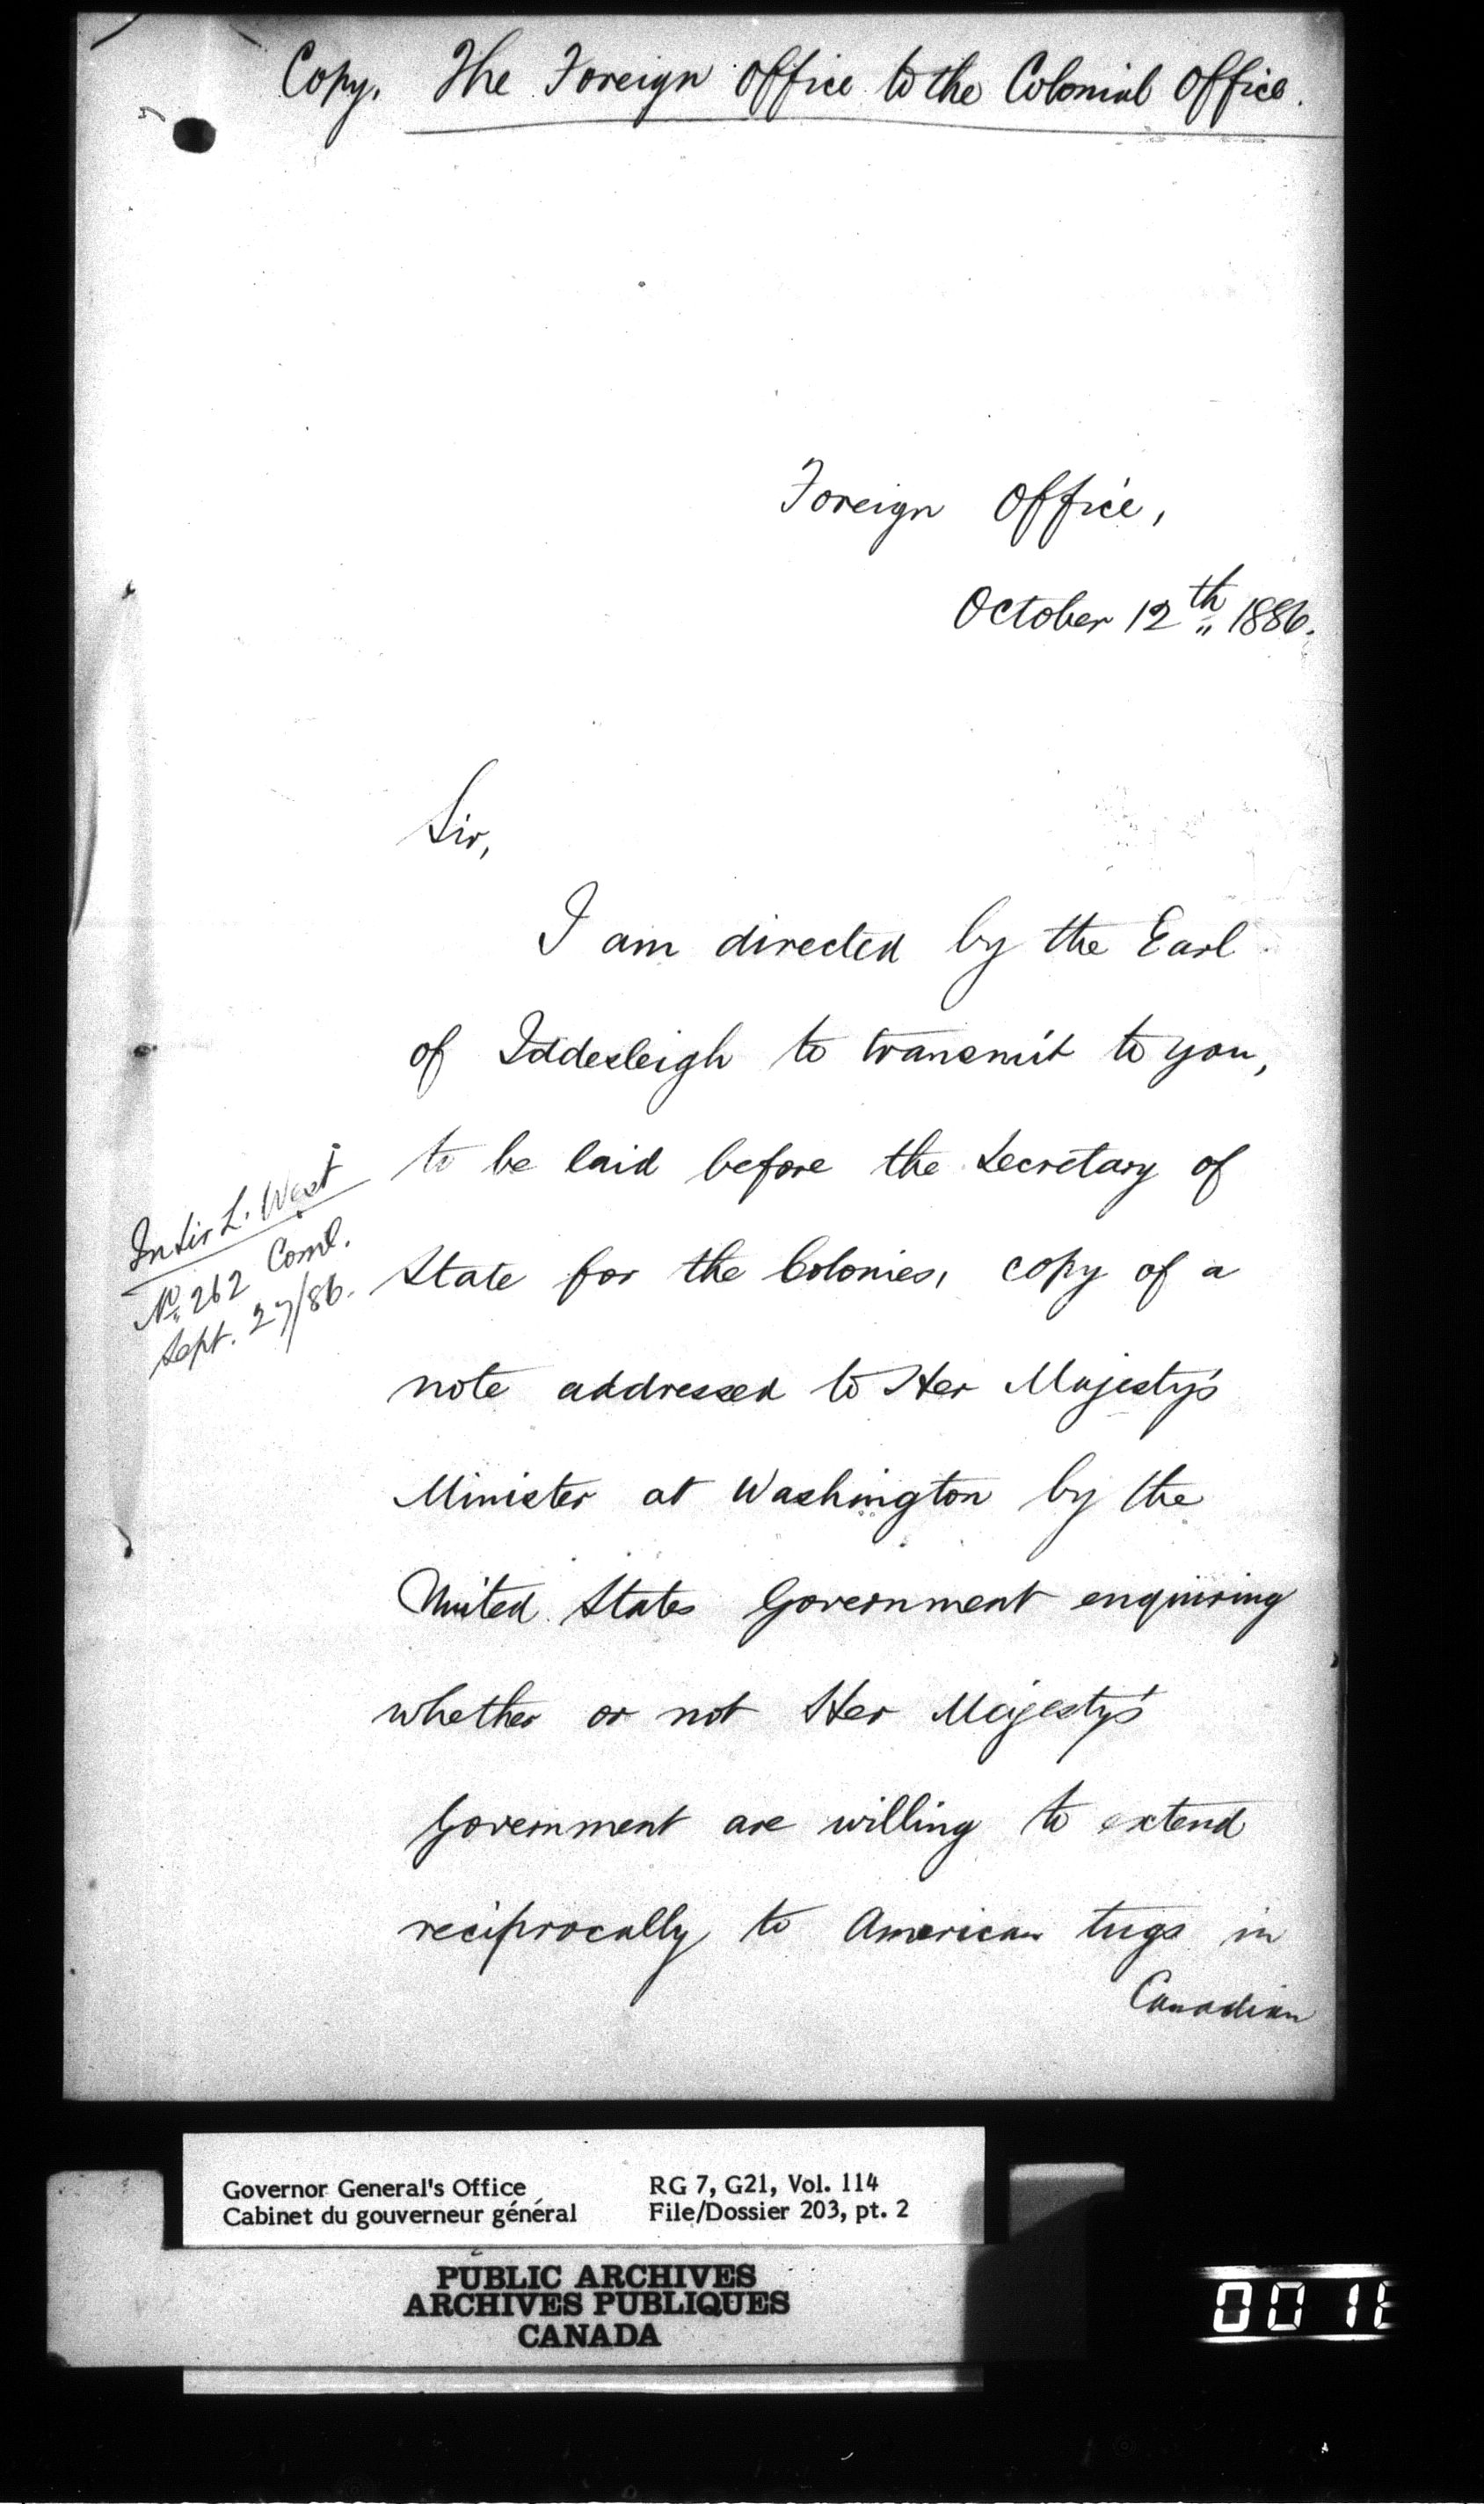 Copy. The Foreign Office to the Colonial Office.
Foreign Office,
October 12th 1886.
Sir,
I am directed by the Earl
of Iddesleigh to transmit to you,
to be laid before the Secretary of
In Sir L. West
No. 262 Coml.
Sept. 27/86.
State for the Colonies, copy of a
note addressed to Her Majesty's
Minister at Washington by the
United States Government enquiring
whether or not Her Majesty's
Government are willing to extend
reciprocally to American tugs in
Canadian
Governor General's Office
Cabinet du gouverneur général
RG 7, G21, Vol. 114
File/Dossier 203, pt. 2
PUBLIC ARCHIVES
ARCHIVES PUBLIQUES
CANADA